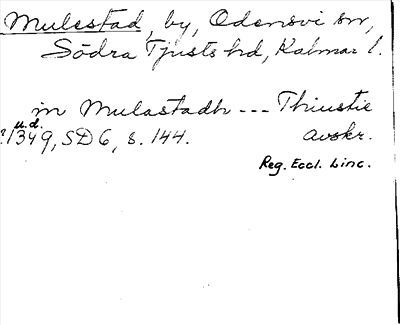 Mulestad, by, Odensvi sn,
Södra Tjusts hd, Kalmar l.
in Mulastadh --- Thiustie
u.d.
? 1349, SD 6, s. 144. avskr.
Reg. Eccl. Linc.